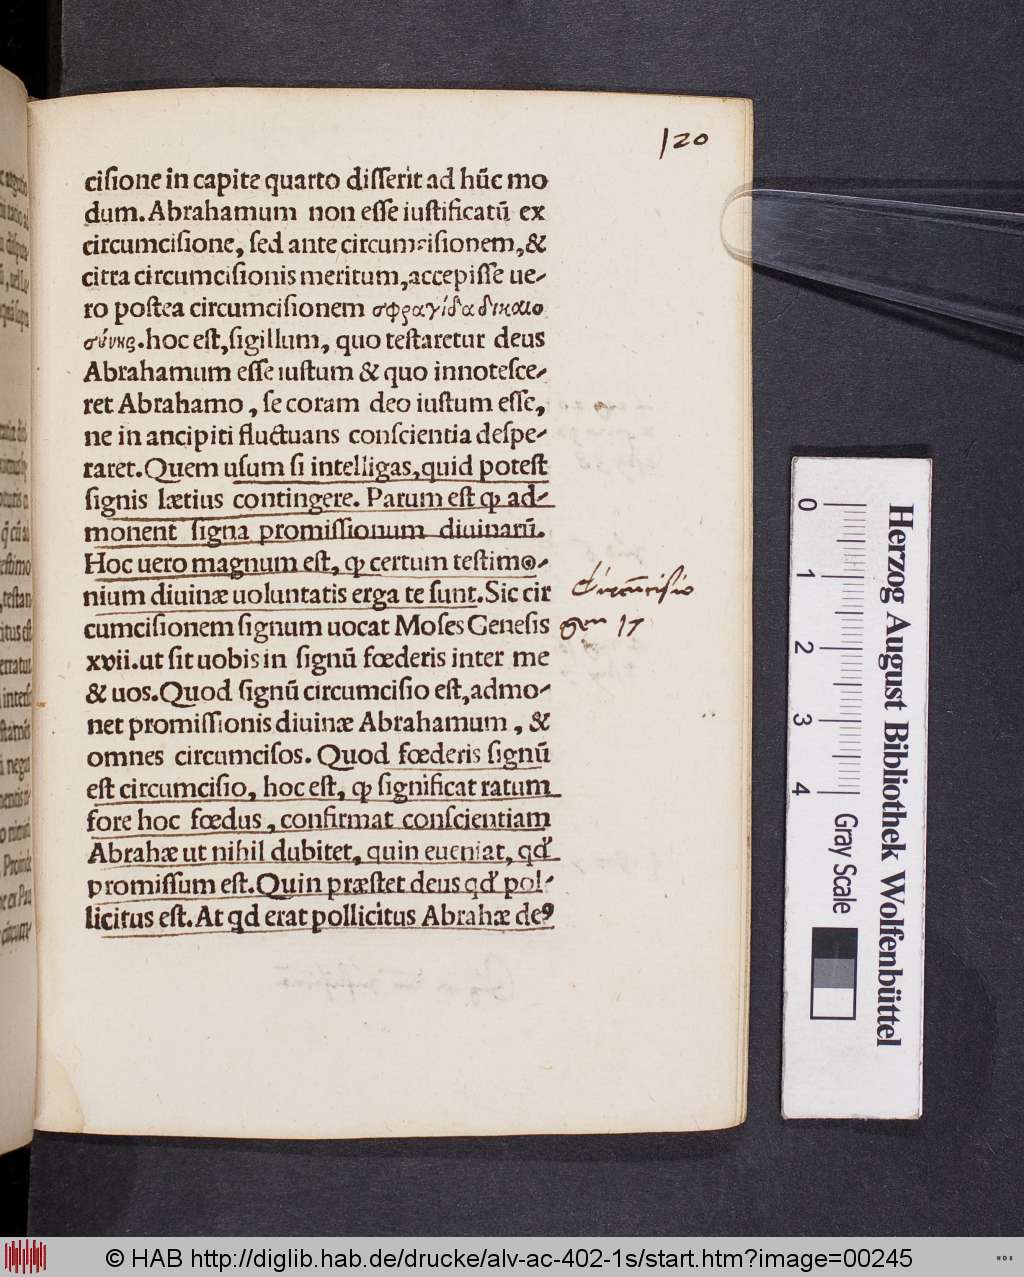 120
ciſione in capite quarto diſſerit ad hūc mo
dum. Abrahamum non eſſe iuſtificatū ex
circumciſione, ſed ante circumciſionem, &
citra circumciſionis meritum, accepiſſe ue-
ro poſtea circumciſionem σφραγίδα δικαιο
σύνης. hoc eſt, ſigillum, quo teſtaretur deus
Abrahamum eſſe iuſtum & quo innoteſce-
ret Abrahamo, ſe coram deo iuſtum eſſe,
ne in ancipiti fluctuans conſcientia deſpe-
raret. Quem uſum ſi intelligas, quid poteſt
ſignis lætius contingere. Parum eſt ꝙ ad-
monent ſigna promiſſionum diuinarū.
Hoc uero magnum eſt, ꝙ certum teſtimo-
nium diuinæ uoluntatis erga te ſunt. Sic cir
cumciſionem ſignum uocat Moſes Geneſis
xvii. ut ſit uobis in ſignū fœderis inter me
& uos. Quod ſignū circumciſio eſt, admo-
net promiſſionis diuinæ Abrahamum, &
omnes circumciſos. Quod fœderis ſignū
eſt circumciſio, hoc eſt, ꝙ ſignificat ratum
fore hoc fœdus, confirmat conſcientiam
Abrahæ ut nihil dubitet, quin eueniat, qđ
promiſſum eſt. Quin præſtet deus qđ pol-
licitus eſt. At qđ erat pollicitus Abrahæ deꝰ
Circūciſio
Gen 17
0
1
2
3
4
Herzog August Bibliothek Wolfenbüttel
Gray Scale
© HAB http://diglib.hab.de/drucke/alv-ac-402-1s/start.htm?image=00245